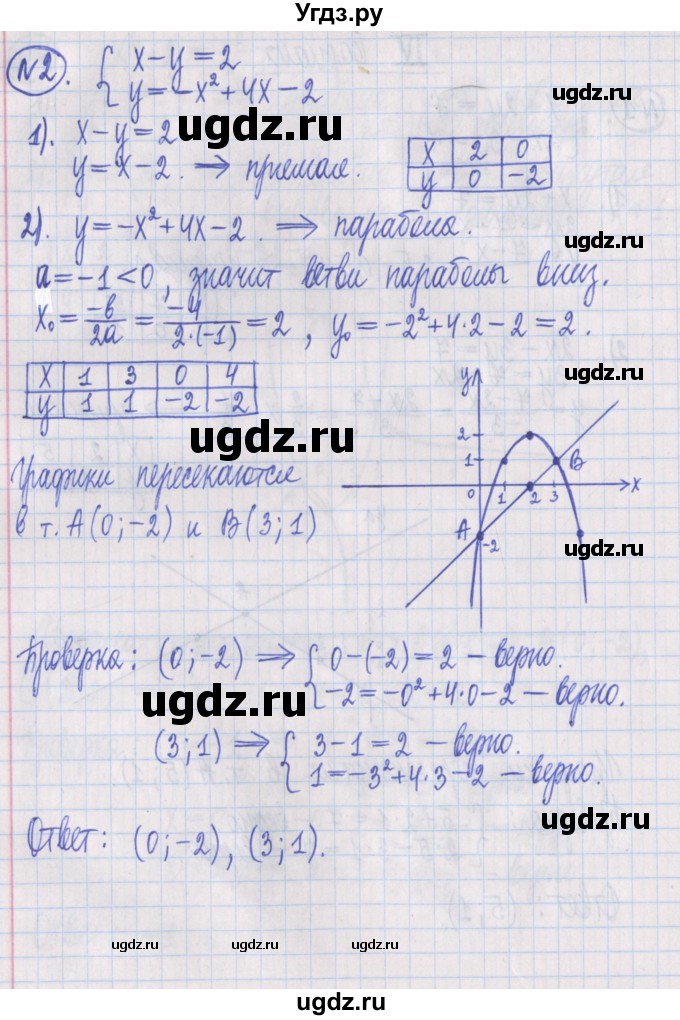 Угдз.ру
№2. { x-y=2
y=-x²+4x-2
ugdz.ru
ugdz.ru
1). x-y=2
y=x-2. ⇒ прямая.
x 2 0
y 0 -2
2). y=-x²+4x-2. ⇒ парабола.
ugdz.ru
a=-1<0, значит ветви параболы вниз.
x₀ = -b/2a = -4/2·(-1) = 2, y₀=-2²+4·2-2=2.
ugdz.ru
x 1 3 0 4
y 1 1 -2 -2
ugdz.ru
y
2
1
B
0 1 2 3 x
A
-2
Графики пересекаются
в т. A(0;-2) и B(3;1)
ugdz.ru
Проверка: (0;-2) ⇒ { 0-(-2)=2 – верно.
-2=-0²+4·0-2 – верно.
ugdz.ru
ugdz.ru
(3;1) ⇒ { 3-1=2 – верно.
1=-3²+4·3-2 – верно.
Ответ: (0;-2), (3;1).
ugdz.ru
ugdz.ru
ugdz.ru
ugdz.ru
ugdz.ru